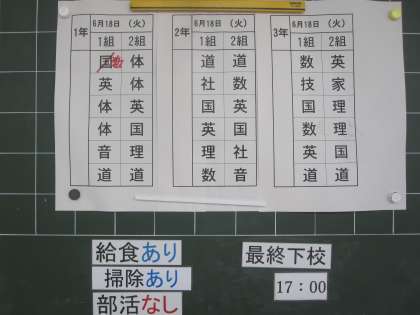 1年 6月18日 (火)
1組 2組
国 数 体
英 体
体 英
体 国
音 理
道 道
2年 6月18日 (火)
1組 2組
道 道
社 数
国 英
英 国
理 社
数 音
3年 6月18日 (火)
1組 2組
数 英
技 家
国 理
数 理
英 国
道 道
給食あり
掃除あり
部活なし
最終下校
17:00